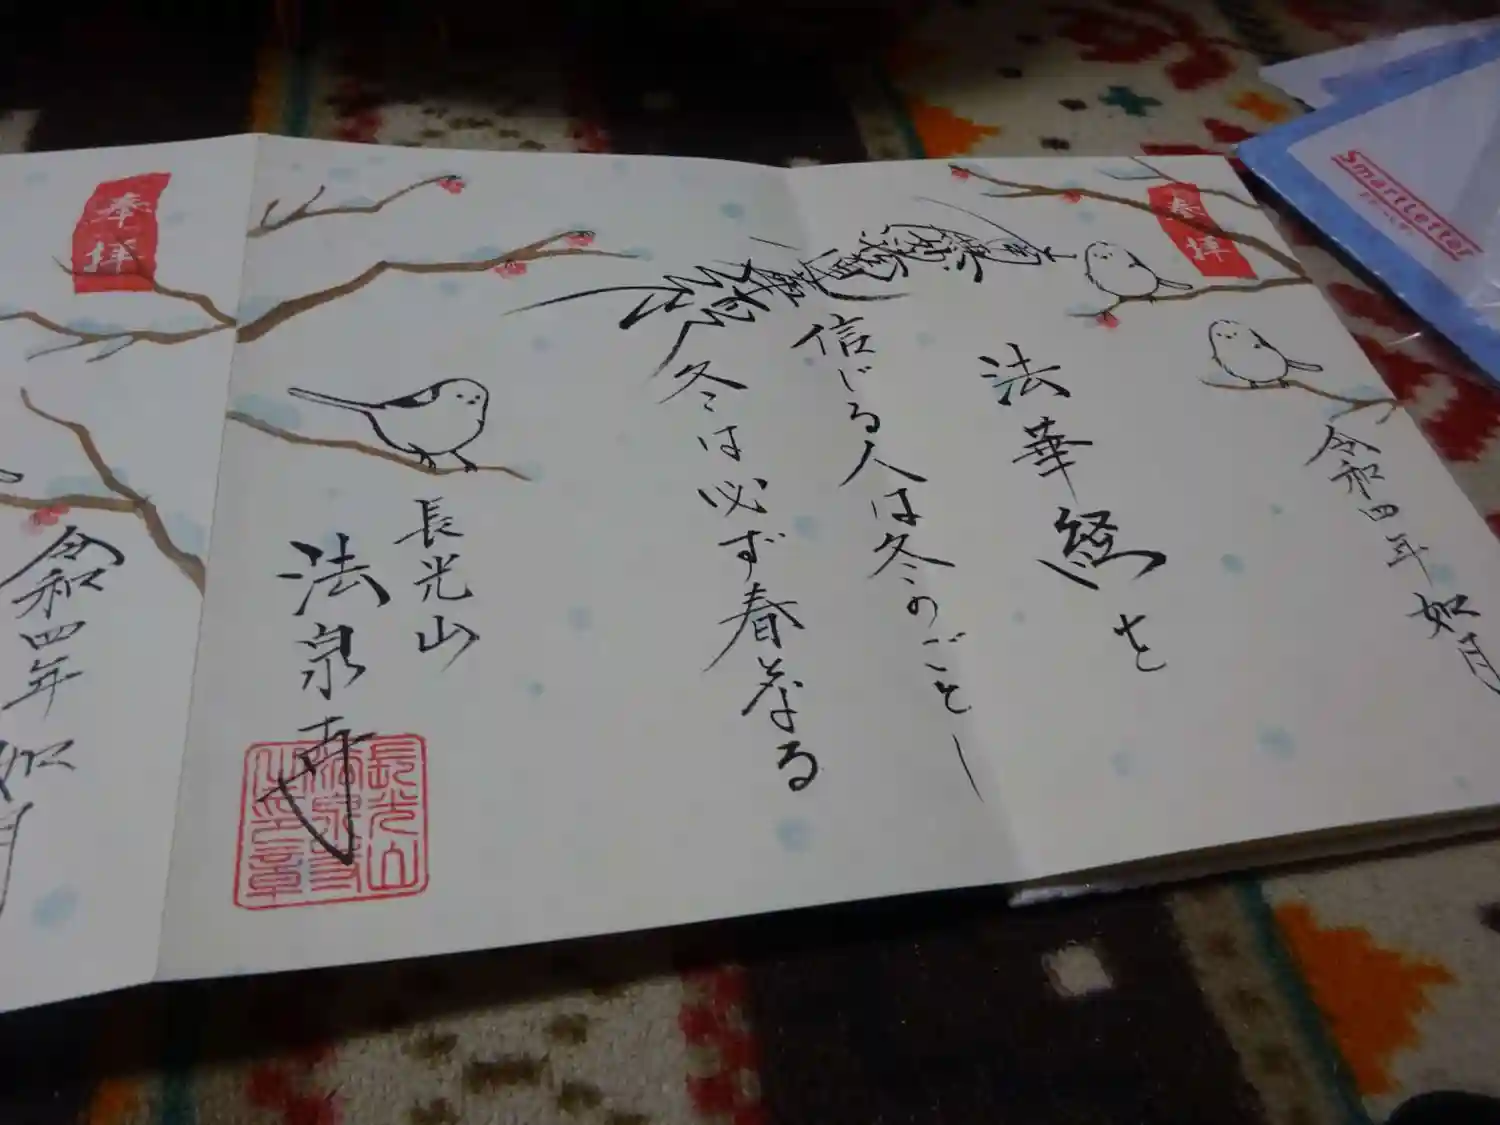 奉拝
令和四年如月
法華経を
信じる人は冬のごとし
冬は必ず春となる
長光山
法泉寺
長光山
法泉寺
之印章
奉拝
令和四年 如月
SmartLetter
スマートレター